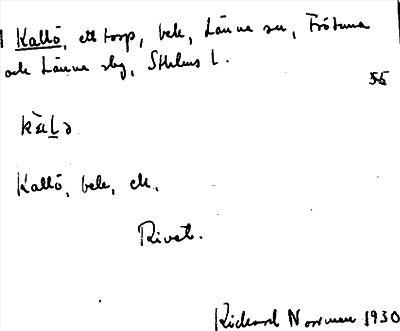 1 Kallö, ett torp, beb, Länna sn, Frötuna
och Länna slg, Sthlms l.
55
Kallö, beb, ek.
Rivet.
Richard Norrman 1930